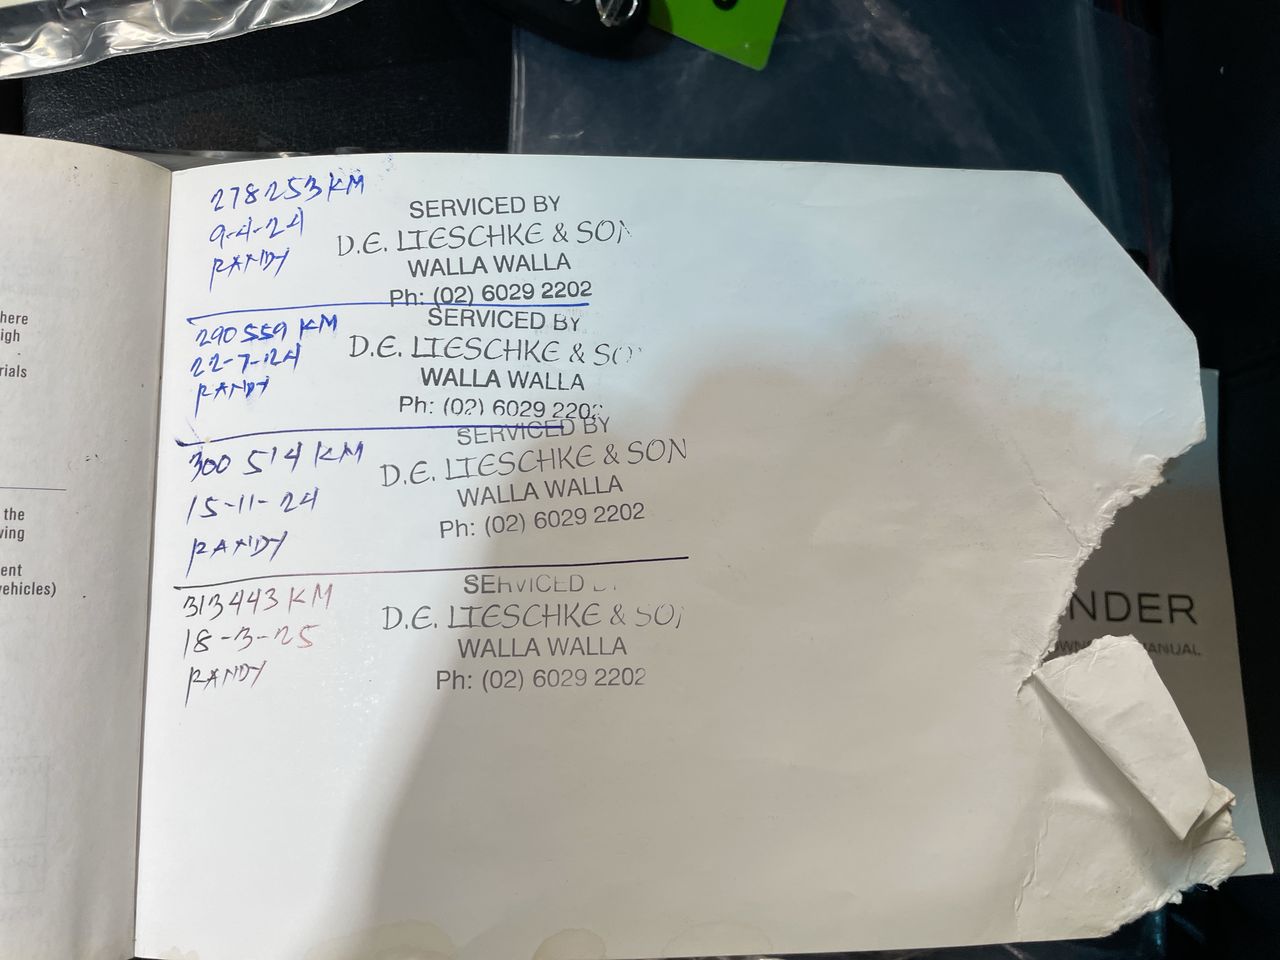 here
igh
rials
the
ving
ent
vehicles)
278253 KM
9-4-24
RANDY
SERVICED BY
D.E. LIESCHKE & SON
WALLA WALLA
Ph: (02) 6029 2202
290559 KM
22-7-24
RANDY
SERVICED BY
D.E. LIESCHKE & SO
WALLA WALLA
Ph: (02) 6029 2202
300 514 KM
15-11-24
RANDY
SERVICED BY
D.E. LIESCHKE & SON
WALLA WALLA
Ph: (02) 6029 2202
313443 KM
18-3-25
RANDY
SERVICED
D.E. LIESCHKE & SON
WALLA WALLA
Ph: (02) 6029 2202
NDER
MANUAL